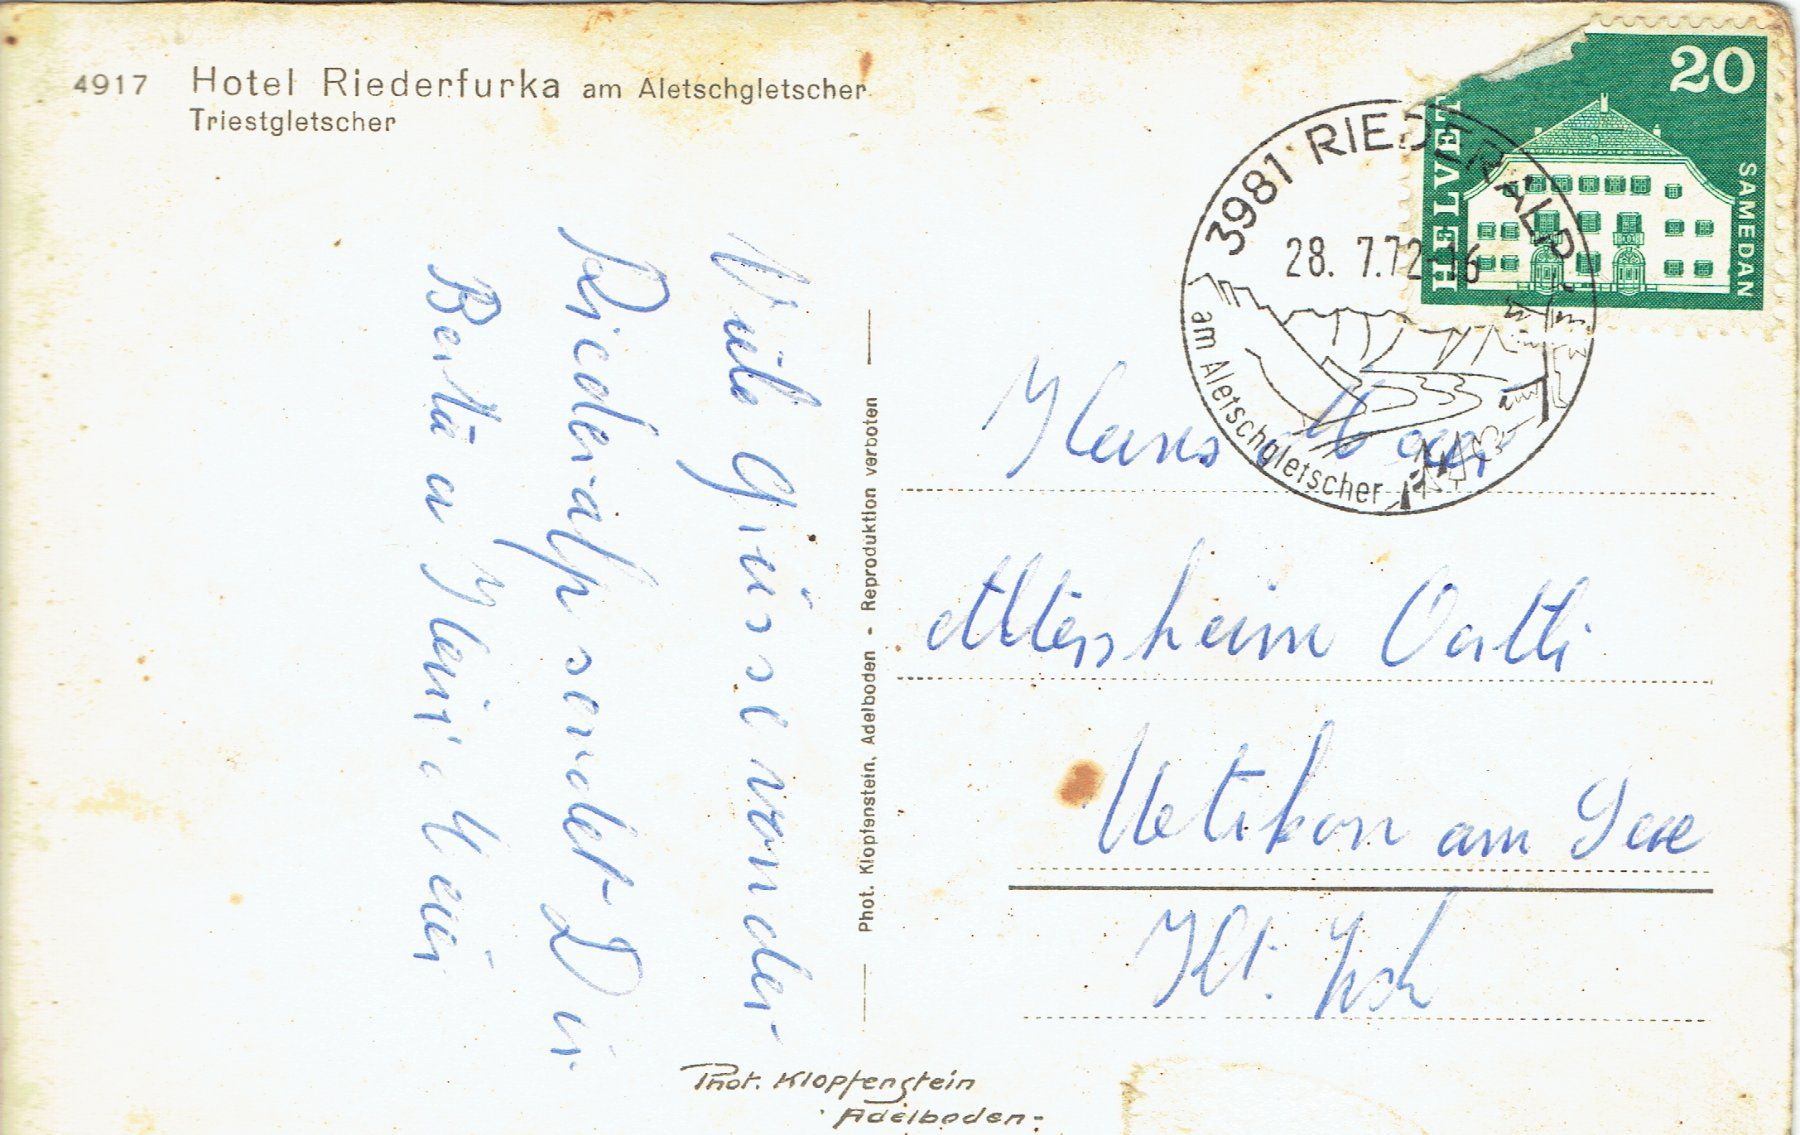 4917 Hotel Riederfurka am Aletschgletscher
Triestgletscher
Viele Grüsse von der
Riederalp sendet Dir
Berta u Heini Meier
Phot. Klopfenstein, Adelboden - Reproduktion verboten
Phot. Klopfenstein
Adelboden-
20
HELVET
SAMEDAN
3981 RIEDERALP
28. 7.72-16
am Aletschgletscher
Hans
Altersheim
Uetikon am See
Kt. Zch